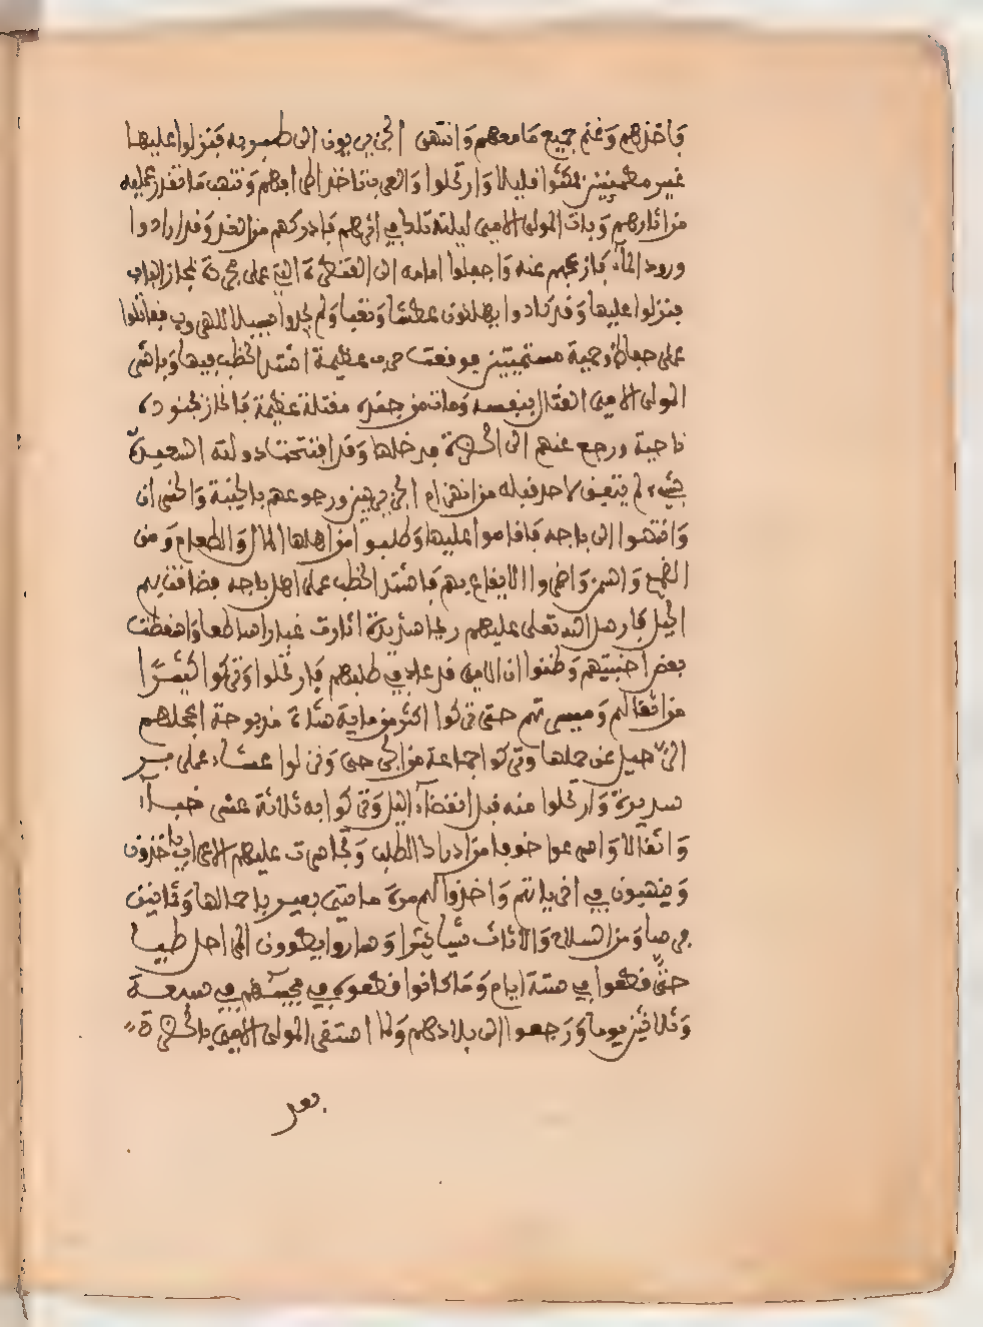 فاخذهم وغنم جميع ما معهم وانتهى الجزيريون الى طبربه فنزلوا عليها
غير مطمينين فمكثوا قليلا وارتحلوا والعرب تاخذ اطرافهم وتنهب ما تقدر عليه
من اثارهم وبات المولى الامير ليلته تلك في اثرهم فادركهم من الغد وقد ارادوا
ورود الماء فازعجهم عنه واجعلوا امامه الى القنطرة التي على مجردة بمجاز الباب
فنزلوا عليها وقد كادوا يهلكون عطشا وتعبا ولم يجدوا سبيلا للهروب فقاتلوا
على حماية مستميتين فوقعت حرب عظيمة اشتد الخطب فيها وباشر
المولى الامير القتال بنفسه ومات من جنده مقتلة عظيمة فانحاز بجنوده
ناحية ورجع عنهم الى الحضرة فدخلها وقد افتتحت دولته السعيدة
بشيء لم يتفق لاحد قبله من انهزام الجزيريين ورجوعهم بالخيبة والخسران
وانتهوا الى باجه فاقاموا عليها وطلبوا من اهلها المال والطعام ومن
القمح والسمن واضمروا الايقاع بهم فاشتد الخطب على اهل باجه فضاقت بهم
الحيل فارسل الله تعلى عليهم ريحا شديدة اثارت غبارا ساطعا واسقطت
بعض اخبيتهم وظنوا ان الامير قد عاد في طلبهم فارتحلوا وتركوا كثيرا
من اثقالهم وميرتهم حتى تركوا اكثر من ماية شاة مذبوحة اعجلهم
الرحيل عن حملها وتركوا جماعة من الجرحى ونزلوا عشاء على بير
سديرة وارتحلوا منه قبل انقضاء الليل وتركوا به ثلاثة عشر خباء
واثقالا واسرعوا خوفا من ادراك الطلب وتجاسرت عليهم الاعراب ياخذون
وينهبون في اخرياتهم واخذوا لهم مرة مايتي بعير باحمالها وثمانين
فرسا ومن السلاح والاثاث شيا كثيرا وصاروا يطوون المراحل طيا
حتى قطعوا في ستة ايام وما كانوا قطعوه في مجيئهم في سبعة
وثلاثين يوما ورجعوا الى بلادهم ولما استقر المولى الامير بالحضرة
بعد